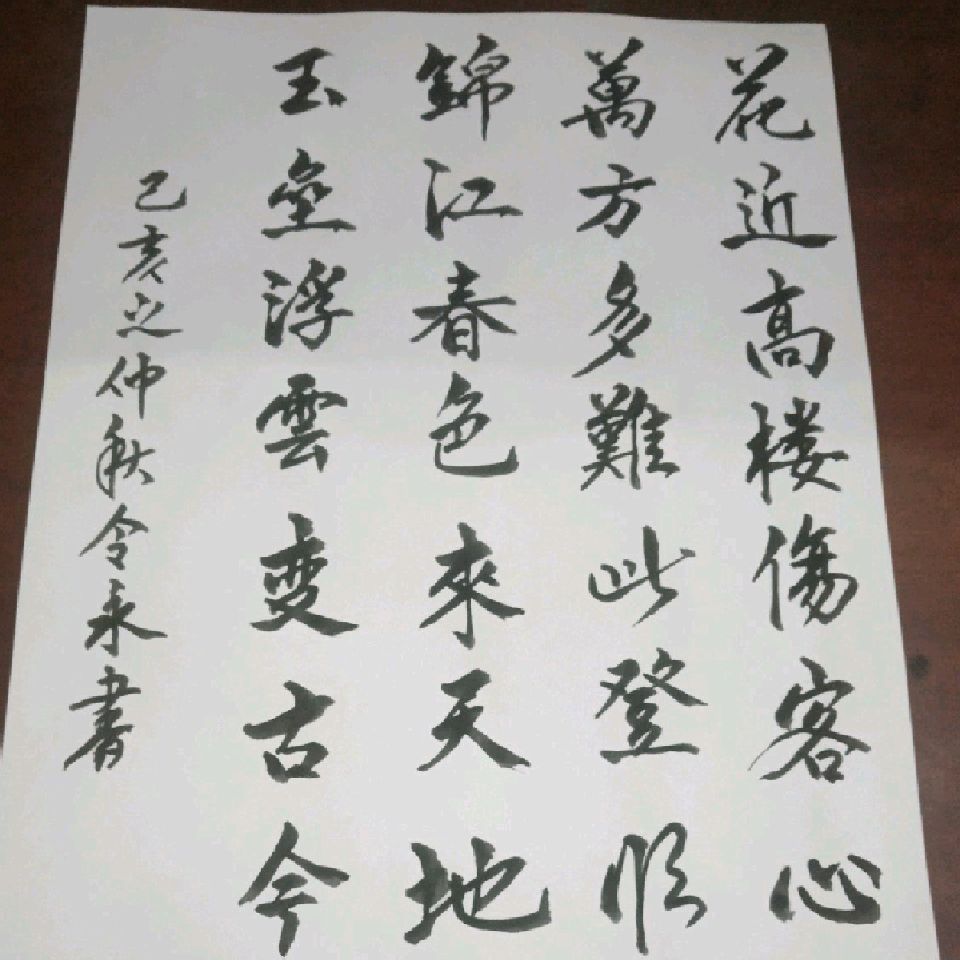 花近高楼傷客心
萬方多難此登临
錦江春色來天地
玉垒浮雲变古今
己亥之仲秋令永書